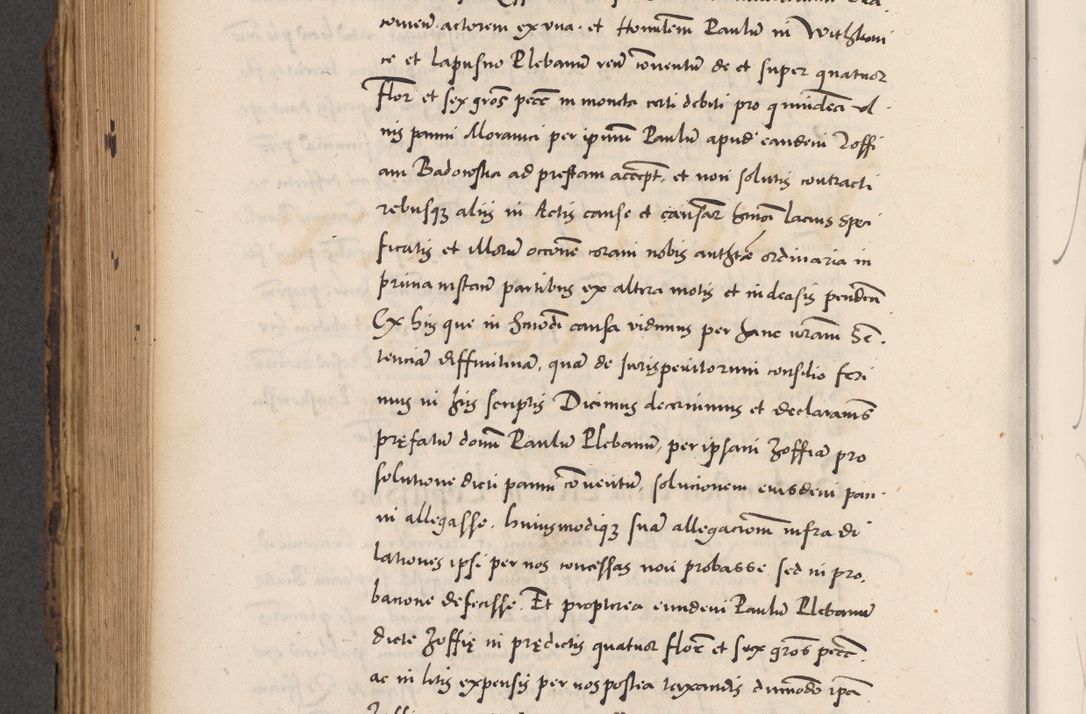 conven. actorem ex una. et Honu͞lem Paulū in Withkovi
ce et Lapusno Plebanū reū co͞ventū de et super quatuor
Flor͞ et sex gros͞ pecc͞ in moneta certi debiti pro quindeci͞ ul
nis panni Moravici per ipsum Paulū apud eandem Zoffi
am Badowska ad prestam accept͞. et non solutis contracti
rebusqꝫ aliis in Actis cause et causar͞ hmōi lacius speci
ficatis et illorū occ͞one coram nobis auth͞te ordinaria in
prima instan͞ partibus ex altera motis et indecisis penden͞
Ex his que in hmodi͞ causa vidimus per hanc nr͞am Sē
tenciā diffinitivā, quā de Jurisperitorum consilio feri
mus in his scriptis Dicimus decernimus et declaramus
pręfatū domi͞nū Paulū Plebanū, per ipsam Zoffiā pro
solutione dicti panni co͞ventū, solucionem eiusdem pan
ni allegasse. huiusmodiqꝫ suā allegacionem infra di
lationes ipsi per nos concessas non probasse sed in pro.
bacione defecisse. Et propterea eundem Paulū Plebanū
dicte Zoffię in prędictis quatuor flor͞ et sex gros͞ pecc͞.
ac in litis expensis per nos postea taxandis dummodo ip͞a